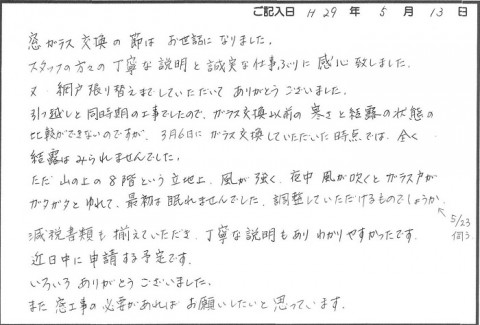 ご記入日 H 29 年 5 月 13 日
窓ガラス交換の節は お世話になりました。
スタッフの方々の丁寧な説明と誠実な仕事ぶりに感心致しました。
又 網戸張り替えまでしていただいて ありがとうございました。
引っ越しと同時期の工事でしたので、ガラス交換以前の寒さと結露の状態の
比較ができないのですが、3月6日にガラス交換していただいた時点では、全く
結露はみられませんでした。
ただ 山の上の8階という立地上、風が強く、夜中 風が吹くとガラス戸が
ガタガタとゆれて、最初は眠れませんでした。調整していただけるものでしょうか。
5/23
伺う
減税書類も揃えていただき、丁寧な説明もあり わかりやすかったです。
近日中に申請する予定です。
いろいろ ありがとうございました。
また 窓工事の必要があれば お願いしたいと思っています。